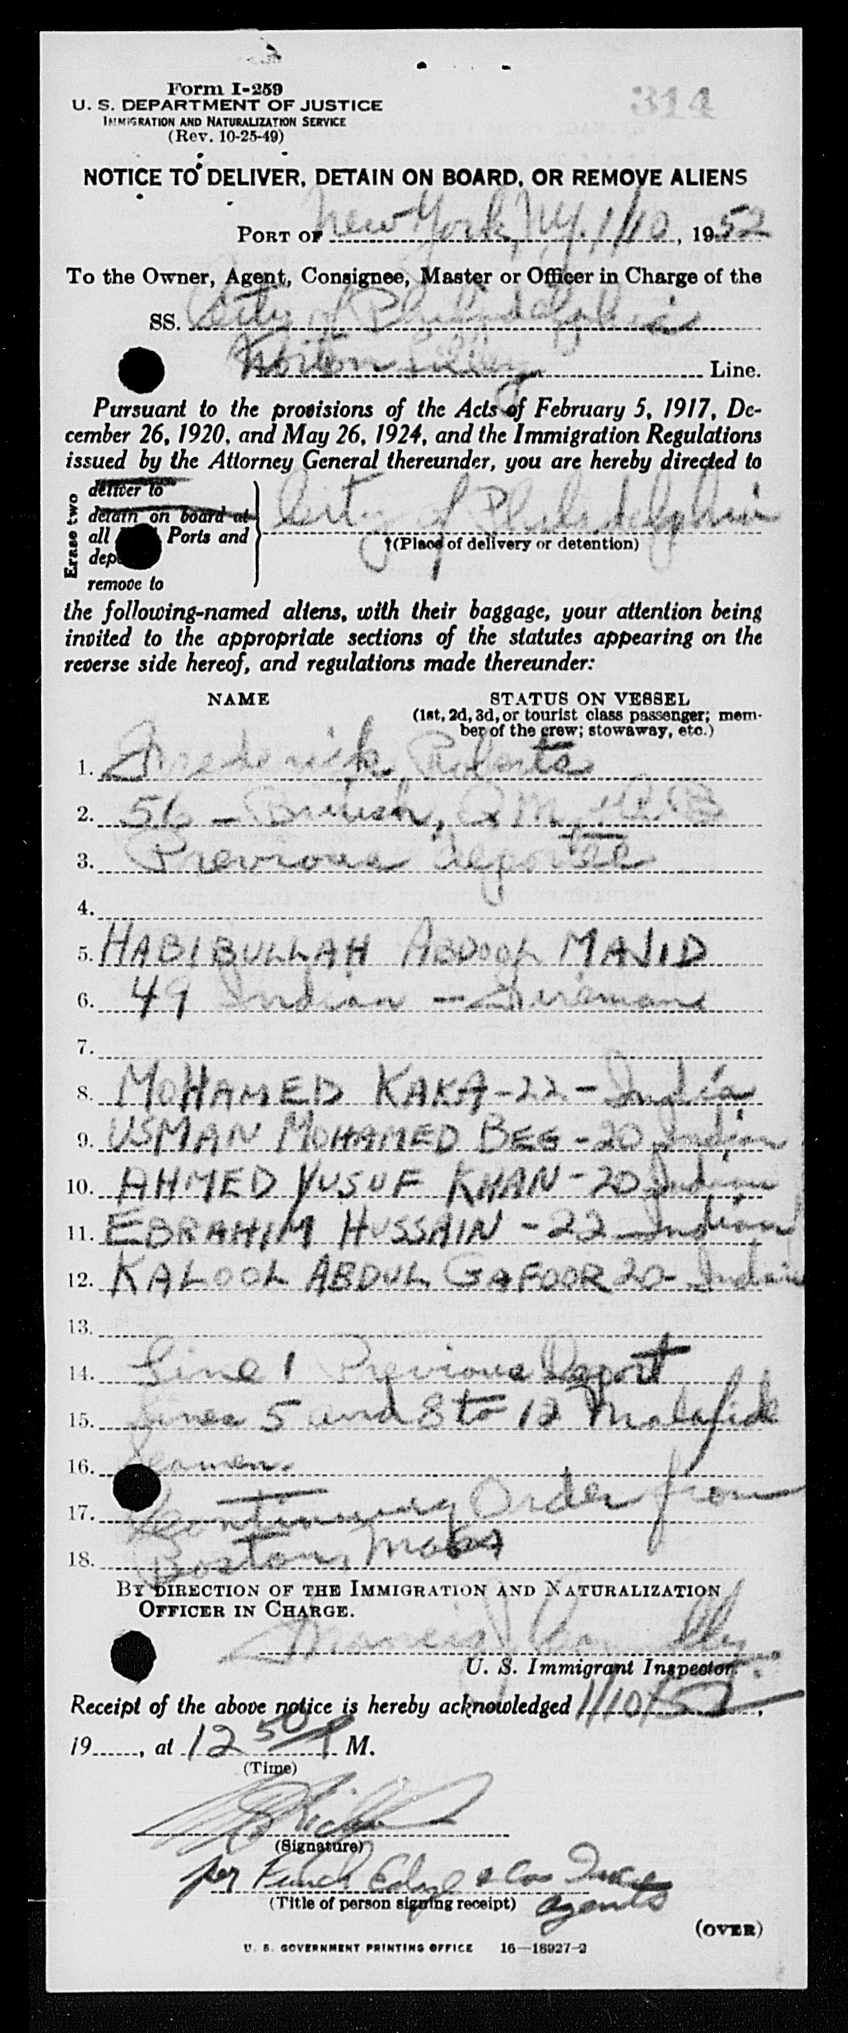 314
Form I-259
U. S. DEPARTMENT OF JUSTICE
IMMIGRATION AND NATURALIZATION SERVICE
(Rev. 10-25-49)
NOTICE TO DELIVER, DETAIN ON BOARD, OR REMOVE ALIENS
PORT OF New York, N.Y. 1/10, 1952
To the Owner, Agent, Consignee, Master or Officer in Charge of the
SS. City of Philadelphia
Norton Lilly Line.
Pursuant to the provisions of the Acts of February 5, 1917, De-
cember 26, 1920, and May 26, 1924, and the Immigration Regulations
issued by the Attorney General thereunder, you are hereby directed to
Erase two
deliver to
detain on board at
all Ports and
dep
remove to
City of Philadelphia
†(Place of delivery or detention)
the following-named aliens, with their baggage, your attention being
invited to the appropriate sections of the statutes appearing on the
reverse side hereof, and regulations made thereunder:
NAME STATUS ON VESSEL
(1st, 2d, 3d, or tourist class passenger; mem-
ber of the crew; stowaway, etc.)
1. Frederick Roberts
2. 56 - British, Q M,
3. Previous Deportee
4.
5. HABIBULLAH ABDOOL MAJID
6. 49 Indian - Fireman
7.
8. MOHAMED KAKA - 22 - India
9. USMAN MOHAMED BEG - 20 Indian
10. AHMED YUSUF KHAN - 20 Indian
11. EBRAHIM HUSSAIN - 22 - Indian
12. KALOOL ABDUL GAFOOR 20 - Indian
13.
14. Line 1 Previous Deport
15. Lines 5 and 8 to 12 Malafide
16. Seamen.
17. Continuing Order from
18. Boston, Mass
BY DIRECTION OF THE IMMIGRATION AND NATURALIZATION
OFFICER IN CHARGE.
Francis J Connolly
U. S. Immigrant Inspector.
Receipt of the above notice is hereby acknowledged 1/10/52,
19, at 12 50 P M.
(Time)
(Signature)
per Funch Edye & Co Inc
(Title of person signing receipt) agents
(OVER)
U. S. GOVERNMENT PRINTING OFFICE 16—18927-2